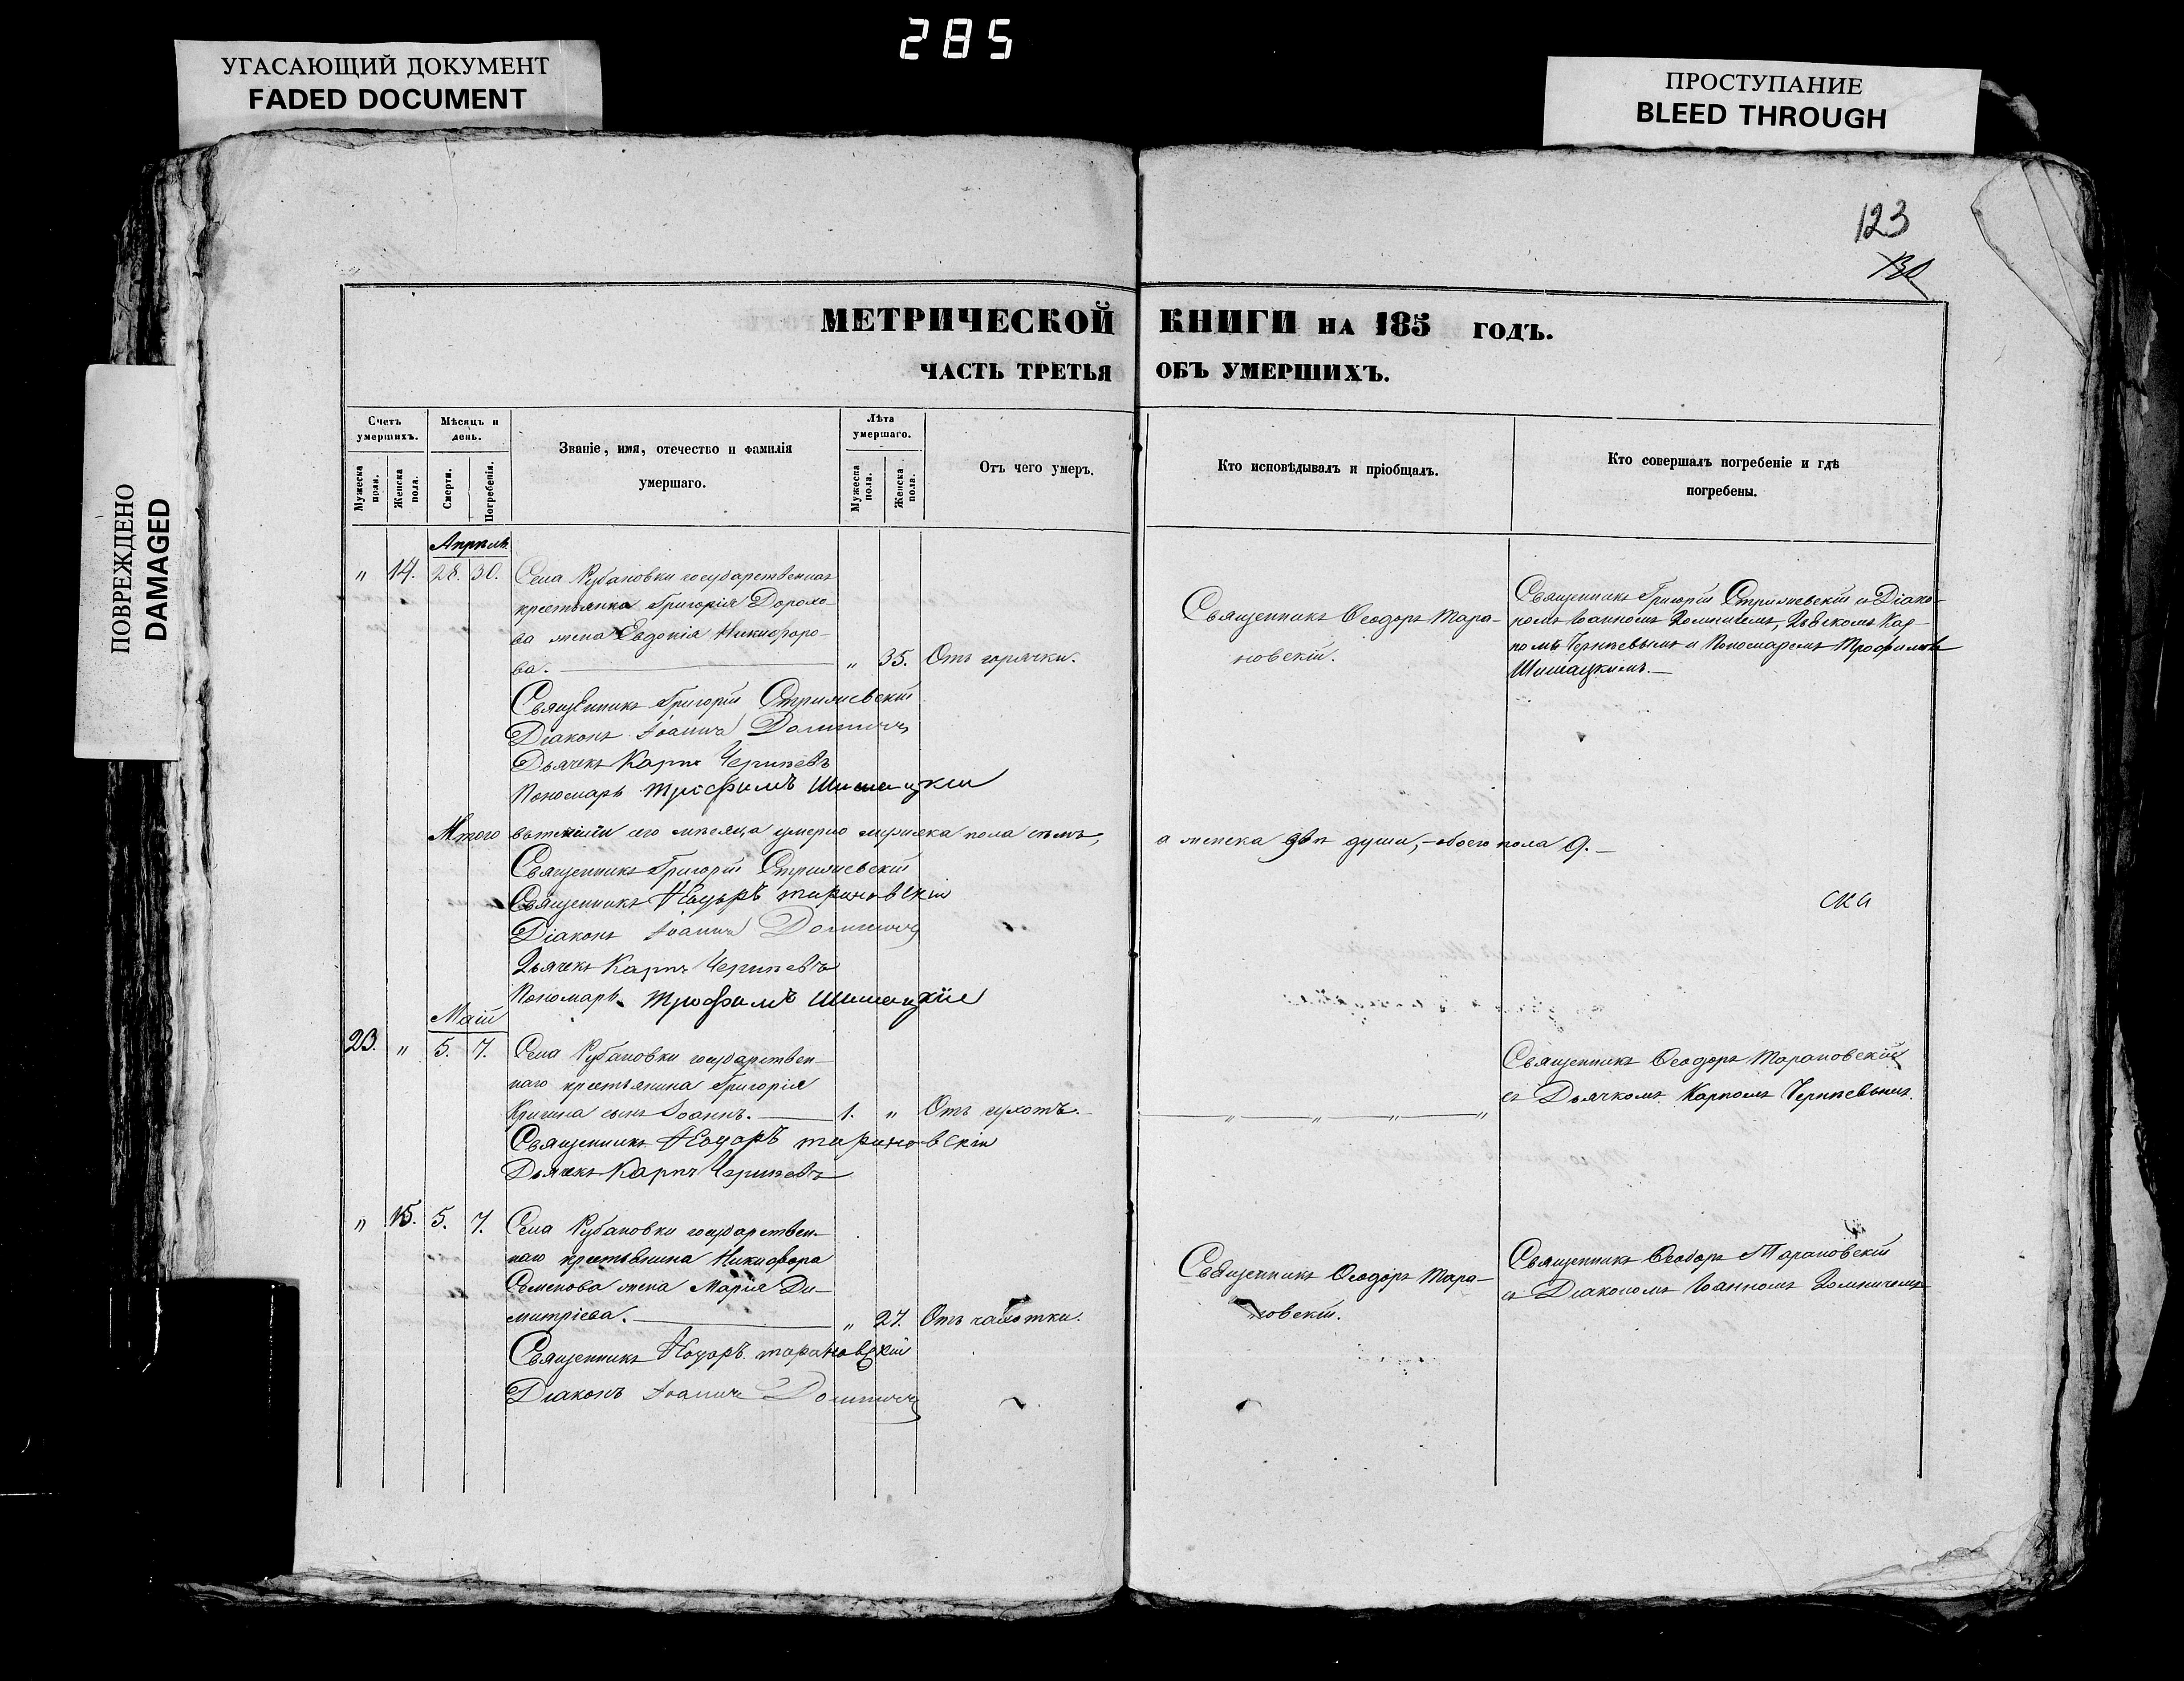 285
УГАСАЮЩИЙ ДОКУМЕНТ
FADED DOCUMENT
ПРОСТУПАНИЕ
BLEED THROUGH
ПОВРЕЖДЕНО
DAMAGED
123
130
МЕТРИЧЕСКОЙ КНИГИ НА 185 ГОДЪ.
ЧАСТЬ ТРЕТЬЯ ОБЪ УМЕРШИХЪ.
Счетъ умершихъ.
Мужеска пола.
Женска пола.
Мѣсяцъ и день.
Смерти.
Погребенія.
Званіе, имя, отечество и фамилія
умершаго.
Лѣта умершаго.
Мужеска пола.
Женска пола.
Отъ чего умеръ.
Кто исповѣдывалъ и пріобщалъ.
Кто совершалъ погребеніе и гдѣ
погребены.
Апрѣль
" 14. 28. 30. Села Рубановки государственнаго
крестьянина Григорія Дорохо-
ва жена Евдокія Никифоро-
ва. " 35. Отъ горячки.
Священникъ Ѳеодоръ Тара-
новскій.
Священникъ Григорій Стрижевскій и Діако-
номъ Іоанномъ Доминичемъ, Дьячкомъ Кар-
помъ Чернѣевымъ и Пономаремъ Трофимомъ
Шишацкимъ.
Священникъ Григорій Стрижевскій
Діаконъ Іоаннъ Доминичъ
Дьячекъ Карпъ Чернѣевъ
Пономарь Трофимъ Шишацкій
Итого въ теченіи сего мѣсяца умерло мужеска пола семь, а женска двѣ души, - обоего пола 9.
Священникъ Григорій Стрижевскій
Священникъ Ѳеодоръ Тарановскій
Діаконъ Іоаннъ Доминичъ
Дьячекъ Карпъ Чернѣевъ
Пономарь Трофимъ Шишацкій
Май
23. " 5. 7. Села Рубановки государствен-
наго крестьянина Григорія
сынъ Іоаннъ. 1. " Отъ сухотъ.
Священникъ Ѳеодоръ Тарановскій
съ Дьячкомъ Карпомъ Чернѣевымъ.
Священникъ Ѳеодоръ Тарановскій
Дьячекъ Карпъ Чернѣевъ
" 15. 5. 7. Села Рубановки государствен-
наго крестьянина Никифора
Семенова жена Марія Ди-
митріева. " 27. Отъ чахотки.
Священникъ Ѳеодоръ Тара-
новскій.
Священникъ Ѳеодоръ Тарановскій
съ Діакономъ Іоанномъ Доминичемъ
Священникъ Ѳеодоръ Тарановскій
Діаконъ Іоаннъ Доминичъ